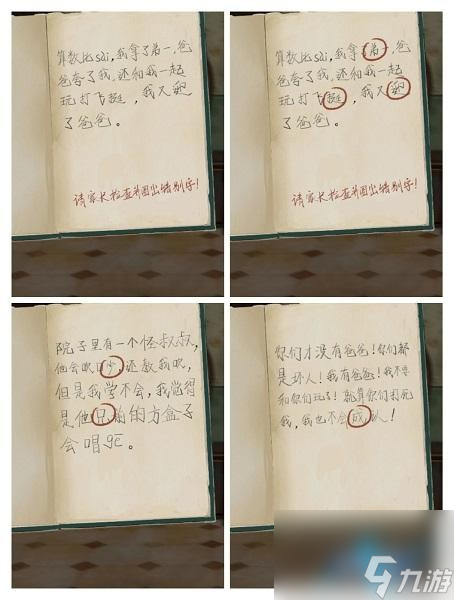 算数比sài,我拿了弟一,爸
爸夸了我,还和我一起
玩打飞挺,我又
了爸爸。
请家长检查并圈出错别字!
算数比sài,我拿了弟一,爸
爸夸了我,还和我一起
玩打飞挺,我又
了爸爸。
请家长检查并圈出错别字!
院子里有一个怪叔叔,
他会吹口少,还教我吹,
但是我学不会,我觉得
是他兄前的方盒子
会唱gē。
你们才没有爸爸!你们都
是坏人!我有爸爸!我不要
和你们玩了!就算你们打死
我,我也不会成认!
九游